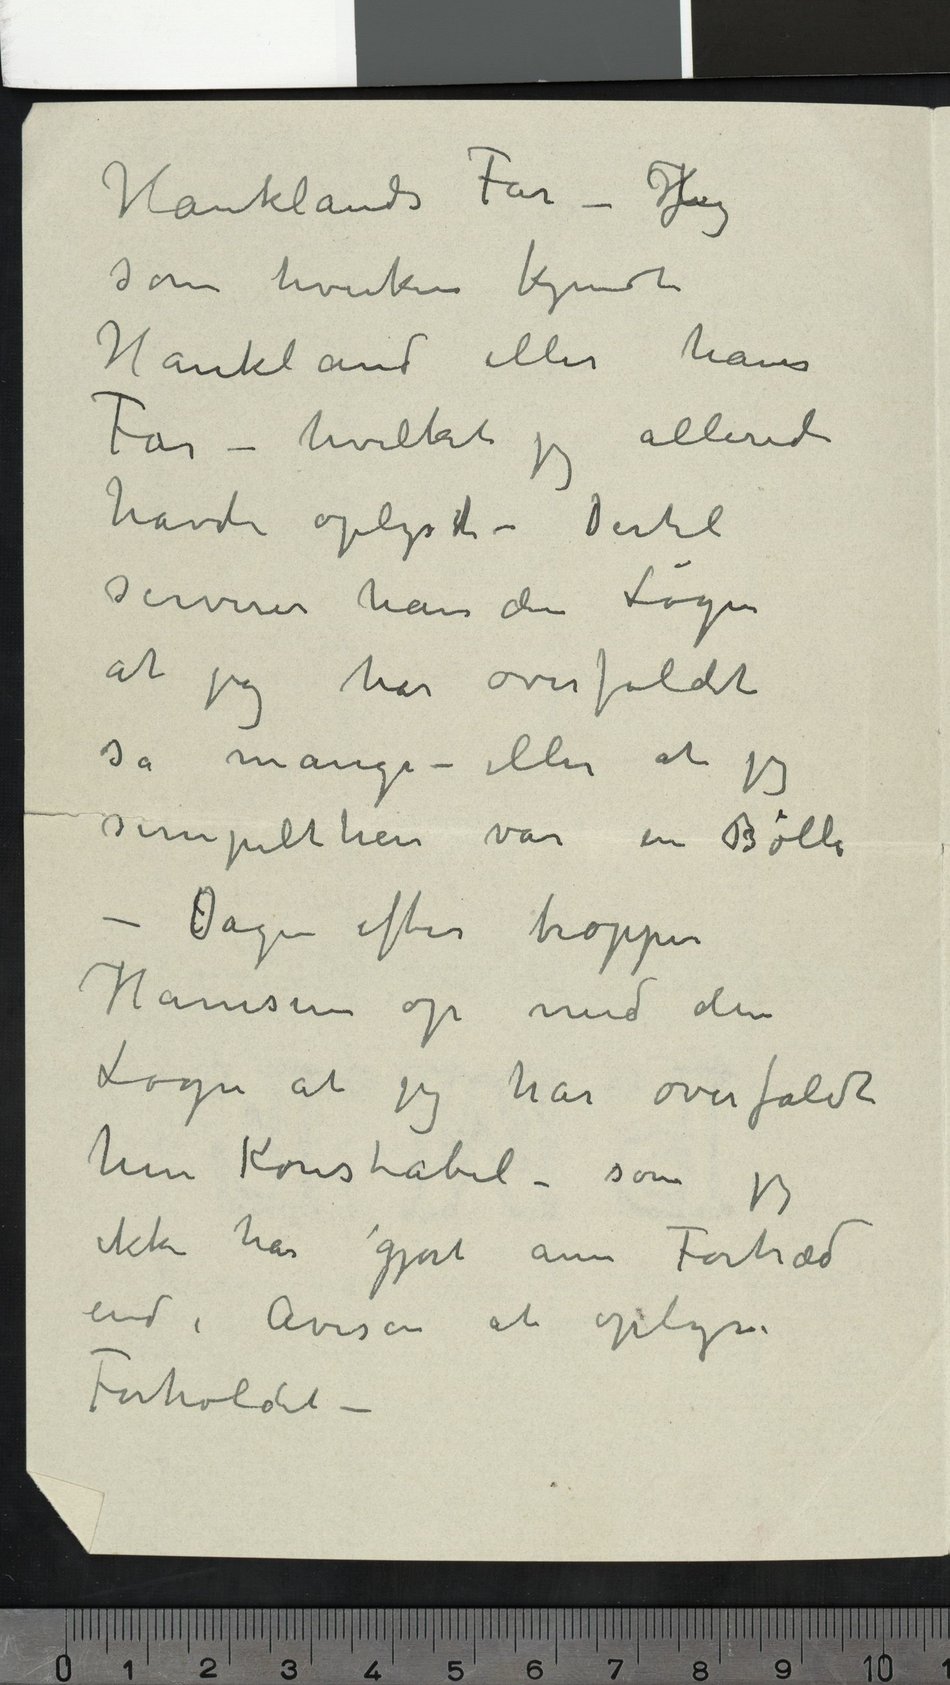 Hauklands Far – Jeg
som hverken kjendte
Haukland eller hans
Far – hvilket jeg allerede
havde oplyst – Dertil
serverer han den Løgn
at jeg har overfaldt
så mange – eller at jeg
simpelthen var en Bølle
– Dagen efter tropper
Hamsun op med den
Løgn at jeg har overfaldt
hin Konstabel – som jeg
ikke har gjort ann Fortræd
end i Avisen at oplyse
Forholdet –
0 1 2 3 4 5 6 7 8 9 10 1